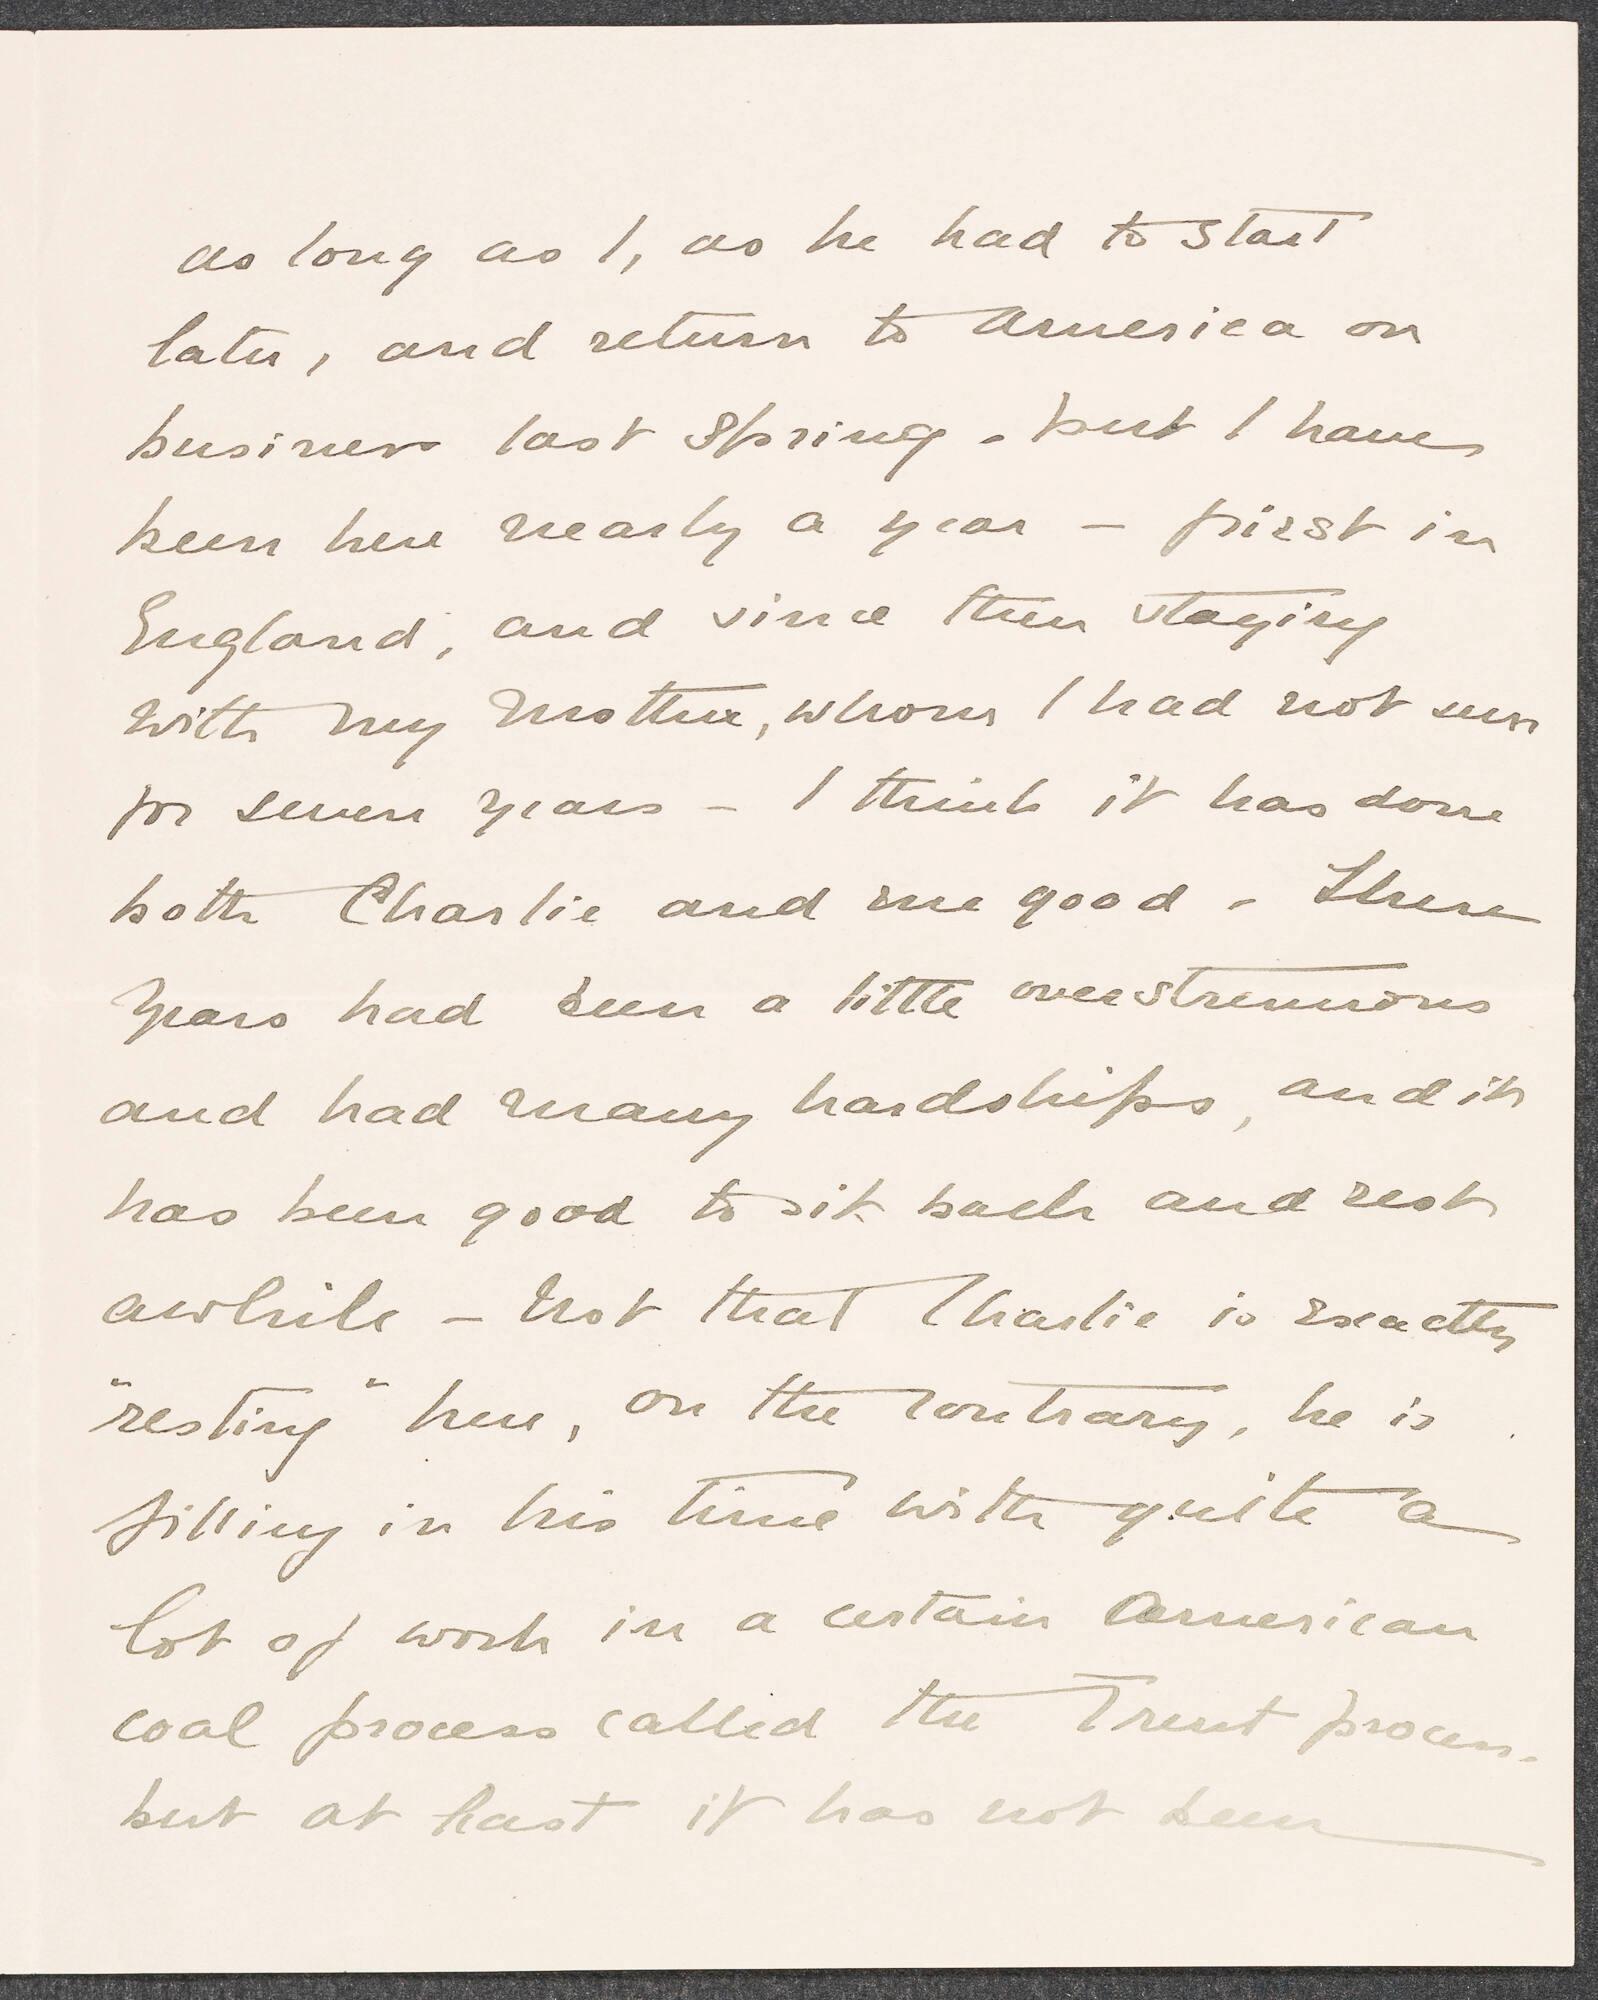 as long as I, as he had to start
later, and return to America on
business last Spring - but I have
been here nearly a year – first in
England, and since then staying
with my Mother, whom I had not seen
for seven years – I think it has done
both Charlie and me good - These
years had been a little overstrenuous
and had many hardships, and it
has been good to sit back and rest
awhile – Not that Charlie is exactly
"resting" here, on the contrary, he is
filling in his time with quite a
lot of work in a certain American
coal process called the Trent process -
but at least it has not been